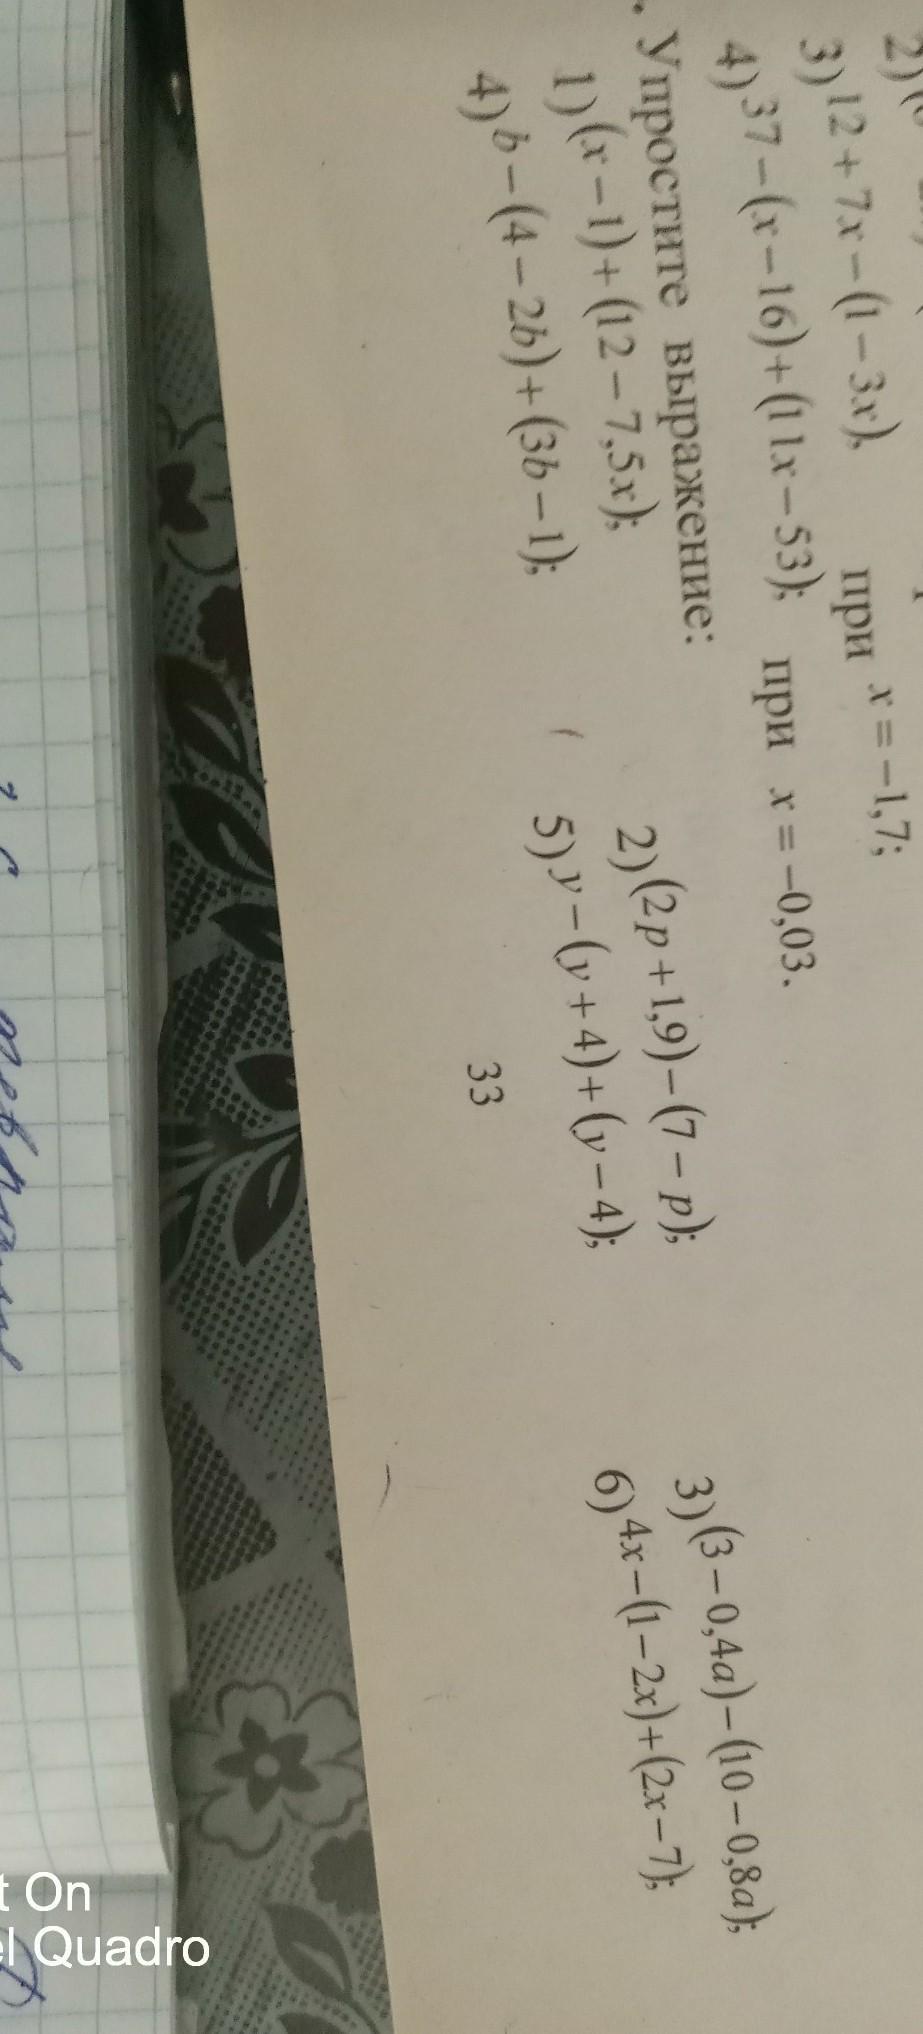 2)
3) 12 + 7x − (1 − 3x), при x = −1,7;
4) 37 − (x − 16) + (11x − 53); при x = −0,03.
. Упростите выражение:
1) (x − 1) + (12 − 7,5x); 2) (2p + 1,9) − (7 − p); 3) (3 − 0,4a) − (10 − 0,8a);
4) b − (4 − 2b) + (3b − 1); 5) y − (y + 4) + (y − 4); 6) 4x − (1 − 2x) + (2x − 7);
33
t On
el Quadro